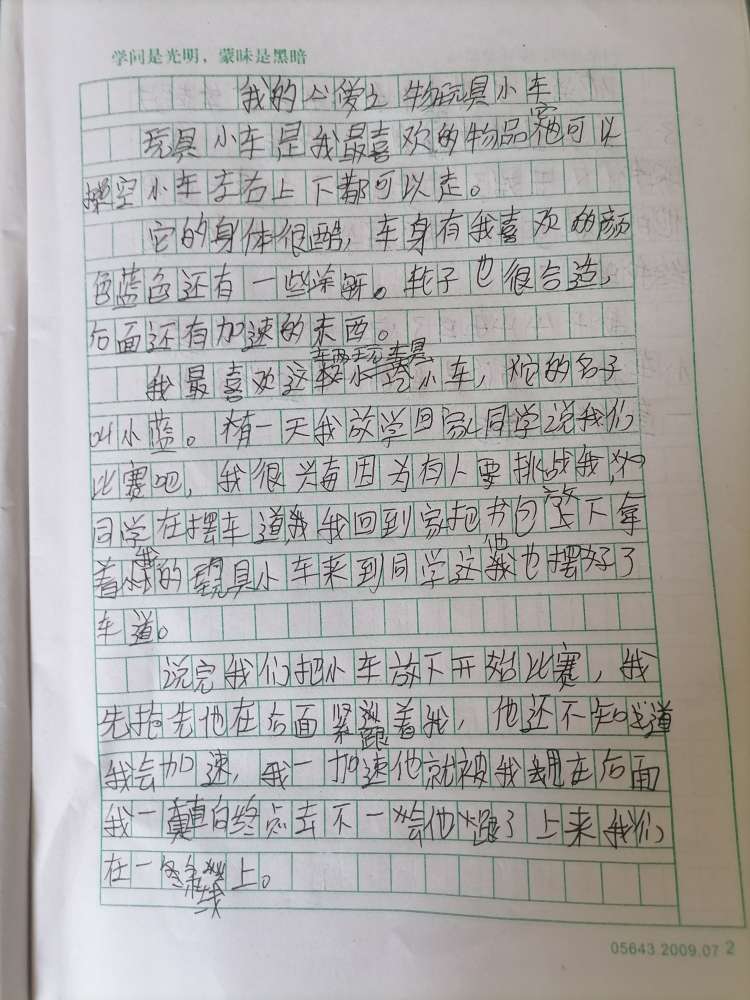 学问是光明，蒙昧是黑暗
我的心爱之物玩具小车
玩具小车是我最喜欢的物品它可以
操空小车左右上下都可以走。
它的身体很酷，车身有我喜欢的颜
色蓝色还有一些涂鸦。轮子也很合适，
后面还有加速的东西。
我最喜欢这小车，它的名子
叫小蓝。有一天我放学回家同学说我们
比赛吧，我很兴奋因为有人要挑战我，
同学在摆车道，我回到家把书包放下拿
着我的玩具小车来到同学这他也摆好了
车道。
说完我们把小车放下开始比赛，我
先抢先他在后面紧跟着我，他还不知道
我会加速，我一加速他就被我甩在后面
我一直向终点去不一会他跟了上来我们
在一线上。
05643.2009.07 2